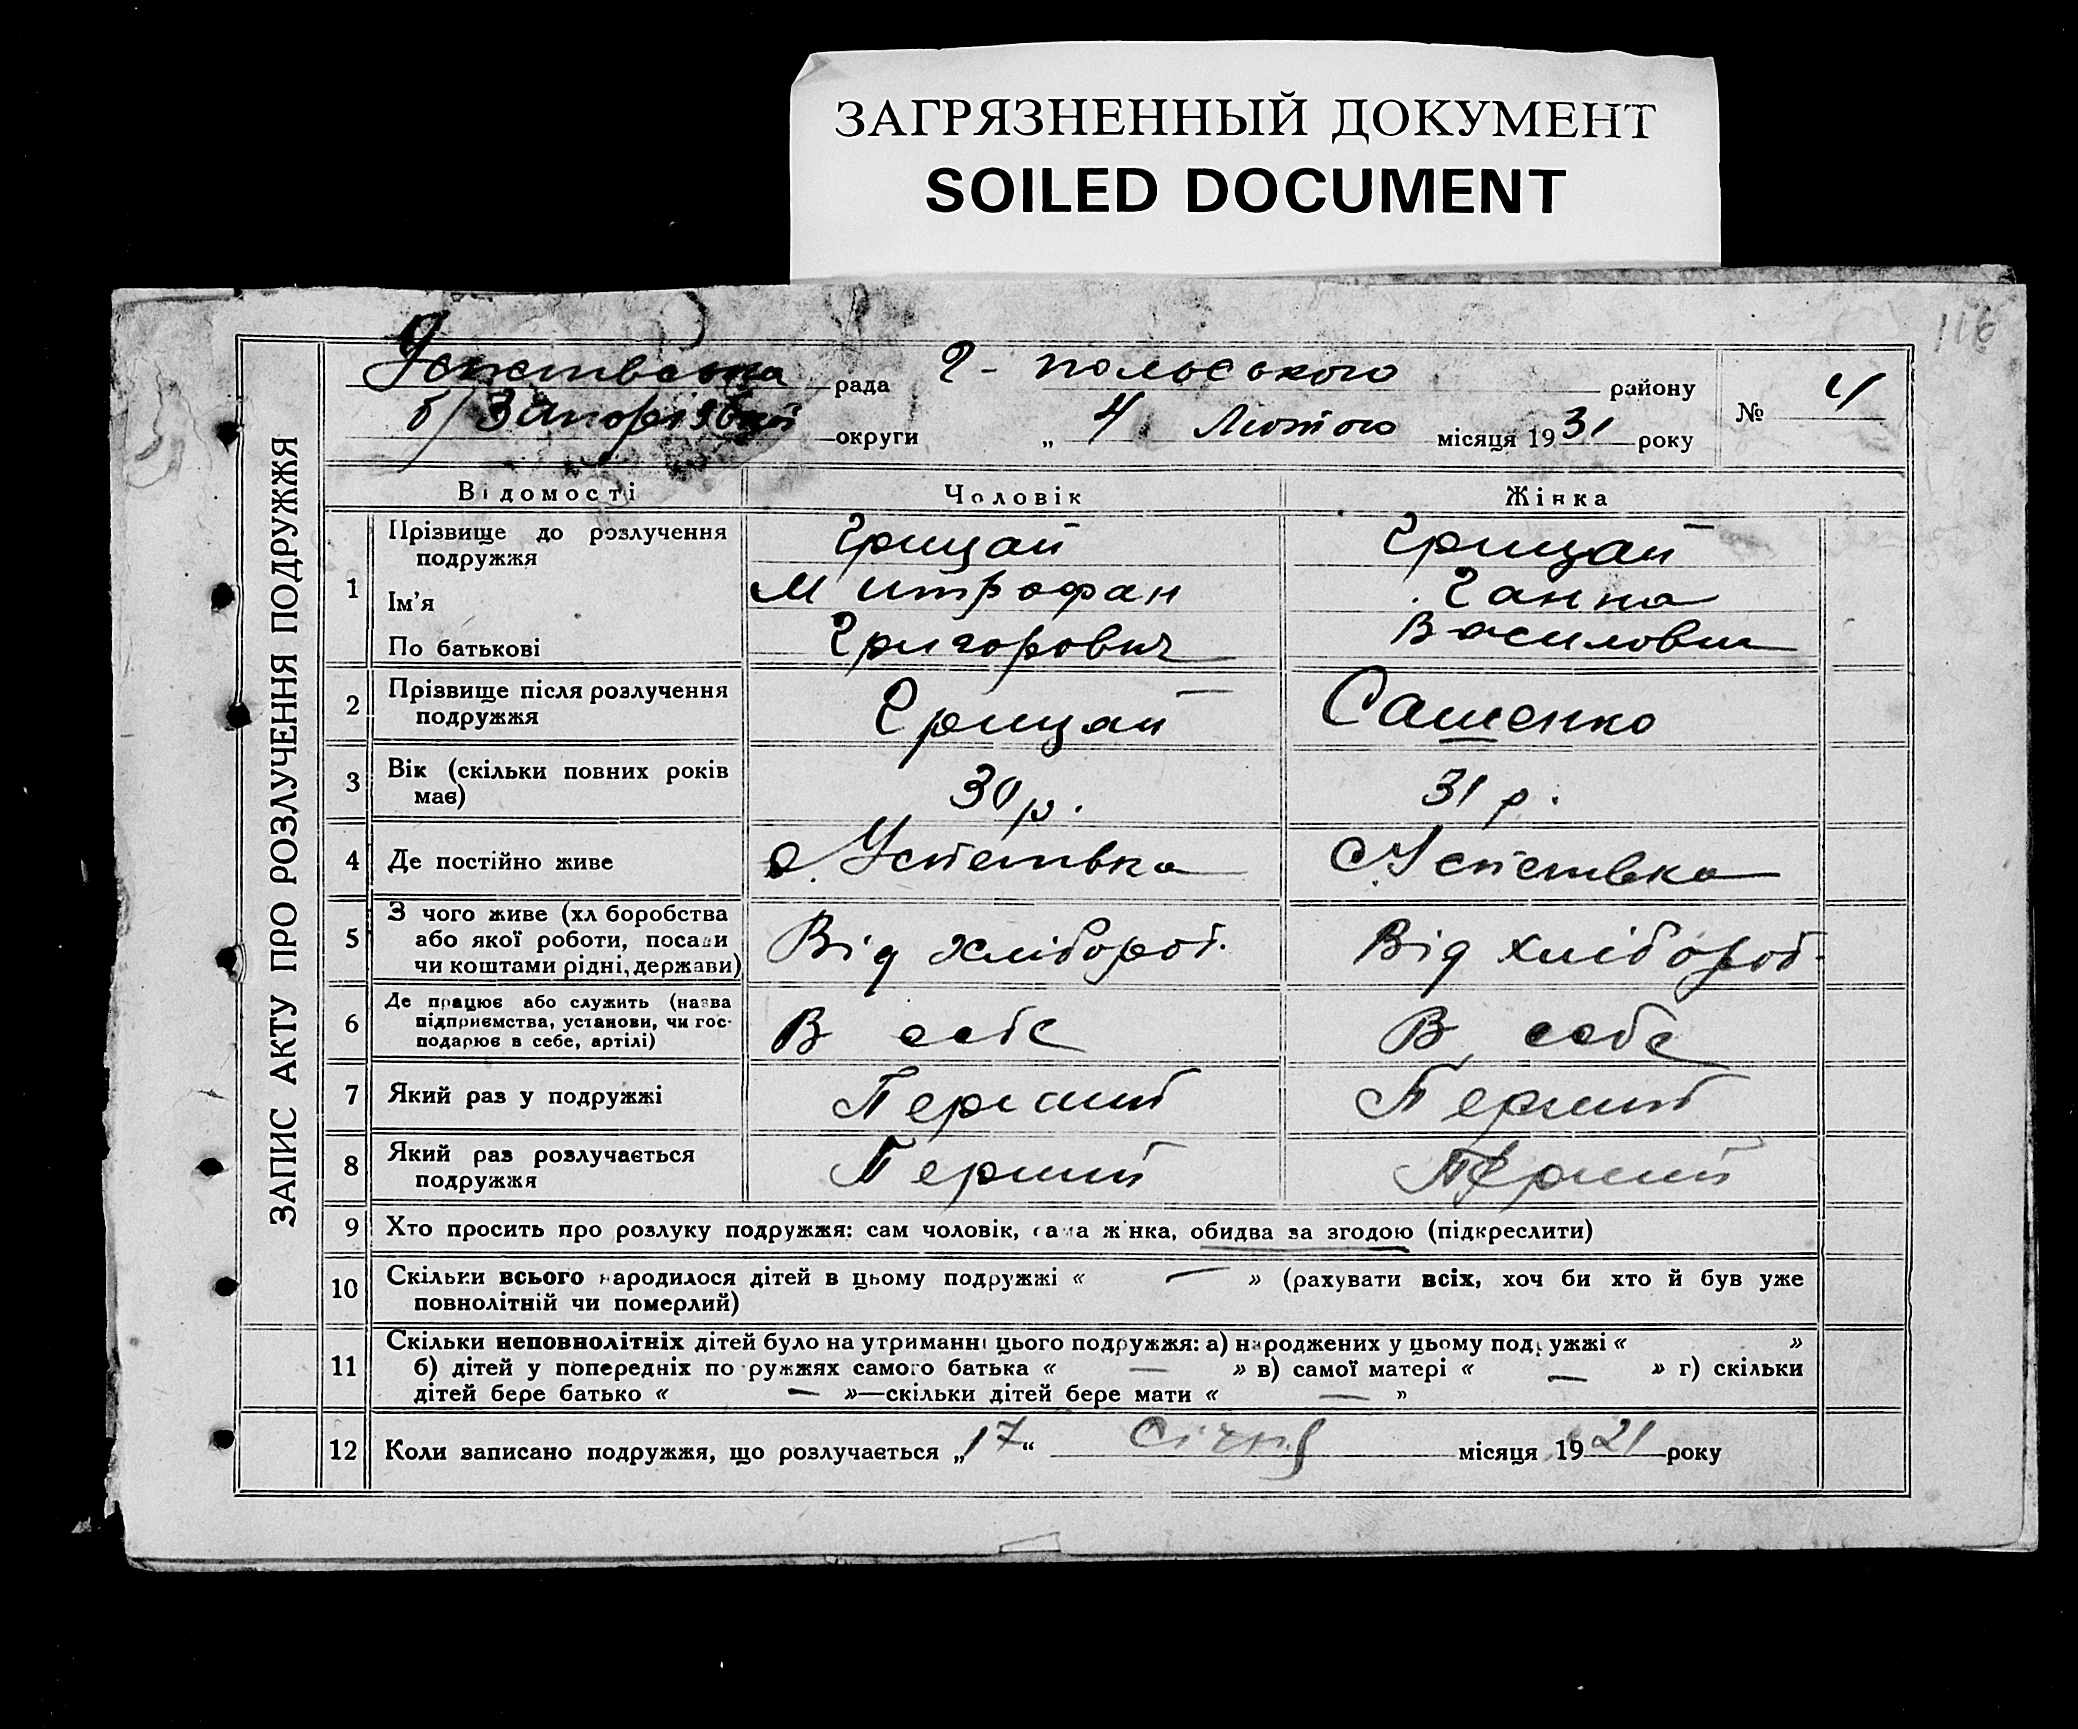 ЗАГРЯЗНЕННЫЙ ДОКУМЕНТ
SOILED DOCUMENT
116
ЗАПИС АКТУ ПРО РОЗЛУЧЕННЯ ПОДРУЖЖЯ
рада Г-польського району
б/ Запорізької округи „ 4 Лютого місяця 1931 року
№ 4
Відомості Чоловік Жінка
1 Прізвище до розлучення подружжя Грицай Грицай
Ім’я Митрофан Ганна
По батькові Григорович Василовна
2 Прізвище після розлучення подружжя Грицай Сашенко
3 Вік (скільки повних років має) 30 р. 31 р.
4 Де постійно живе с. Успетівка с. Успетівка
5 З чого живе (хл боробства або якої роботи, посади чи коштами рідні, держави) Від хлібороб. Від хлібороб.
6 Де працює або служить (назва підприємства, установи, чи господарює в себе, артілі) В себе В себе
7 Який раз у подружжі Перший Перший
8 Який раз розлучається подружжя Перший Перший
9 Хто просить про розлуку подружжя: сам чоловік, сама жінка, обидва за згодою (підкреслити)
10 Скільки всього народилося дітей в цьому подружжі « — » (рахувати всіх, хоч би хто й був уже
повнолітній чи померлий)
11 Скільки неповнолітніх дітей було на утриманні цього подружжя: а) народжених у цьому подружжі « »
б) дітей у попередніх подружжях самого батька « — » в) самої матері « — » г) скільки
дітей бере батько « — »—скільки дітей бере мати « — »
12 Коли записано подружжя, що розлучається „17“ Січня місяця 1921 року